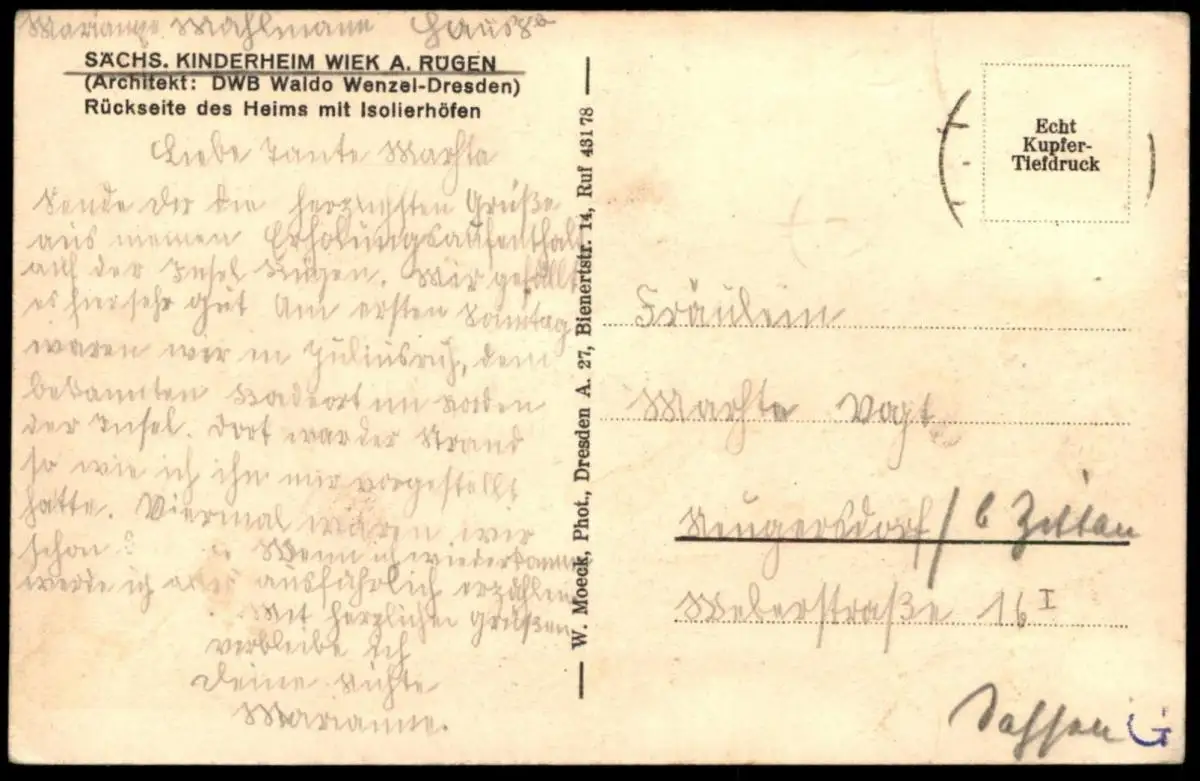 Marianne Mahlmann Haus 8
SÄCHS. KINDERHEIM WIEK A. RÜGEN
(Architekt: DWB Waldo Wenzel-Dresden)
Rückseite des Heims mit Isolierhöfen
Liebe Tante Martha
Sende Dir die herzlichsten Grüße
aus meinen Erholungsaufenthalt
auf der Insel Rügen. Mir gefällt
es hier sehr gut Am ersten Sonntag
waren wir in Juliusruh, dem
bekannten Badeort im Norden
der Insel. Dort war der Strand
so wie ich ihn mir vorgestellt
hatte. Viermal waren wir
schon
Wenn ich wiederkomme
werde ich alles ausführlich erzählen
Mit herzlichen Grüßen
verbleibe Ich
Deine Nichte
Marianne.
W. Moeck, Phot., Dresden A. 27, Bienertstr. 14, Ruf 43178
Echt
Kupfer-
Tiefdruck
Fräulein
Martha Vogt
Neugersdorf / b Zittau
Weberstraße 16 I
Sachsen